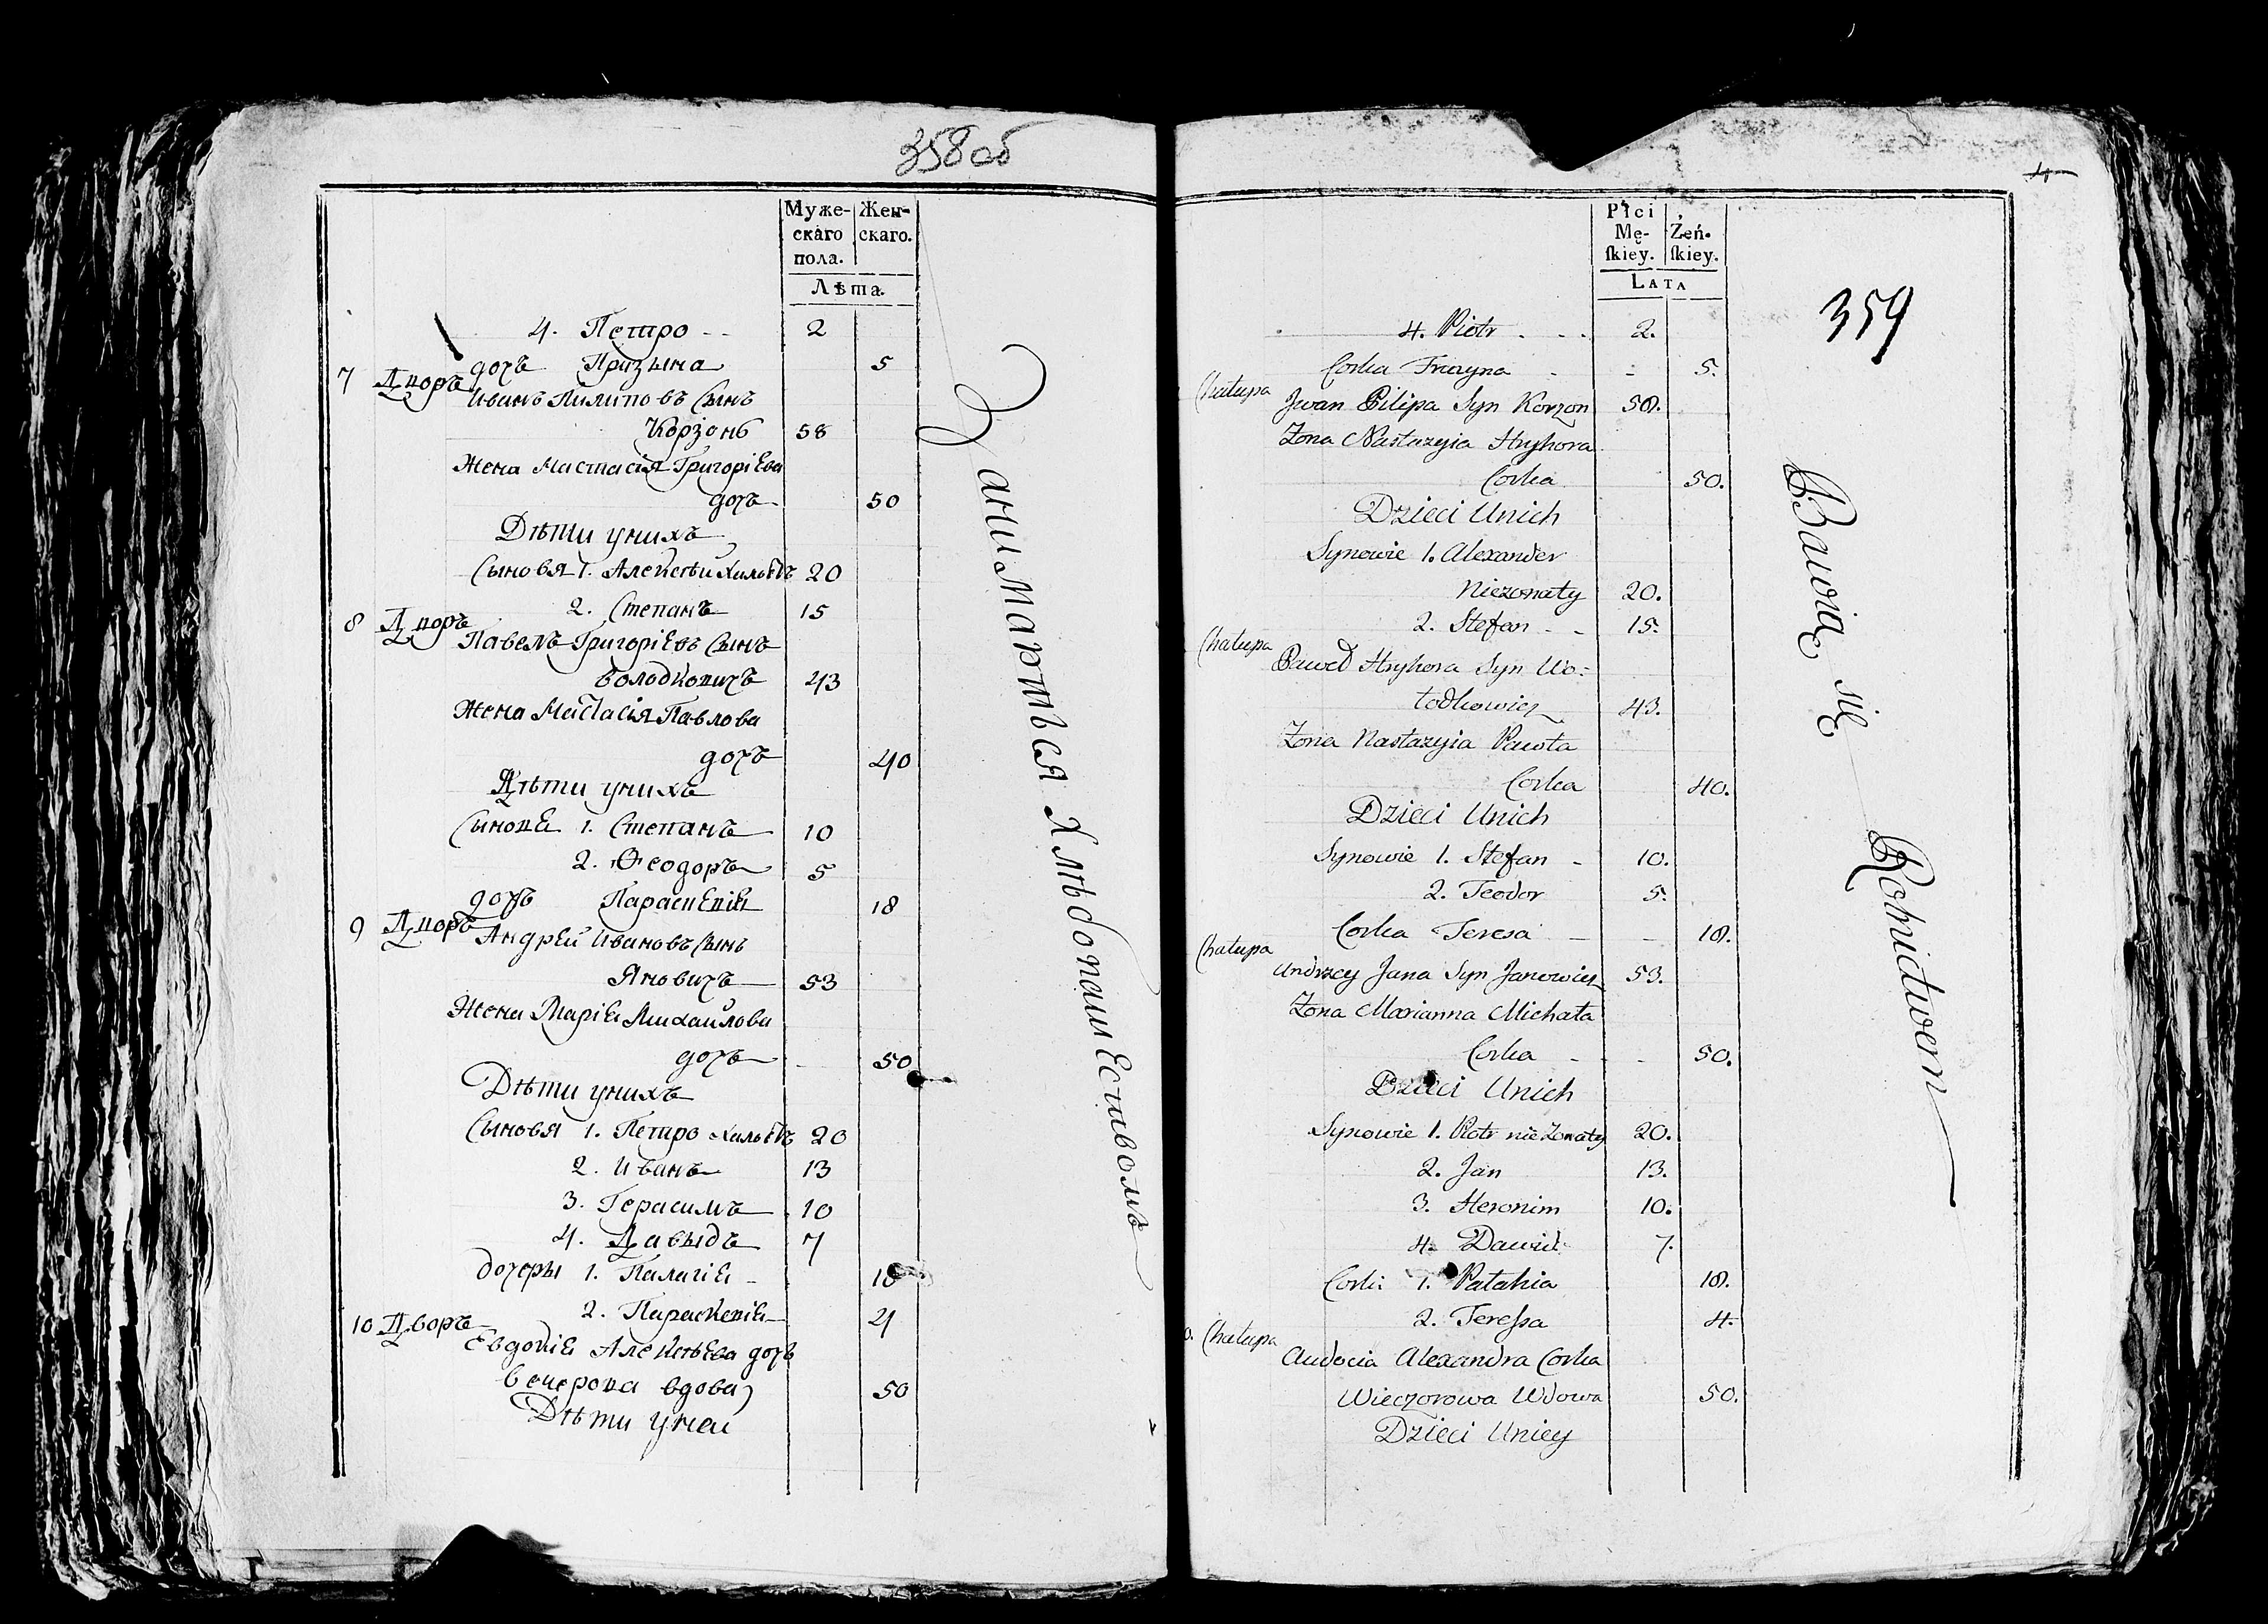 358 об
Муже- Жен-
скаго скаго.
пола.
Лѣта.
4. Петро -- 2
дочь Призына 5
7 Дворъ
Иванъ Пилиповъ Сынъ
Корзонь 58
Жена Настасія Григоріева
дочь 50
Дѣти унихъ
Сыновя 1. Алексѣй 20
2. Степанъ 15
8 Дворъ
Павелъ Григоріевъ Сынъ
Володковичъ 43
Жена Настасія Павлова
дочь 40
Дѣти унихъ
Сынове 1. Степанъ 10
2. Ѳеодоръ 5
дочь Параскевія 18
9 Дворъ
Андрей Ивановъ Сынъ
Яновичъ 53
Жена Марія Михайлова
дочь 50
Дѣти унихъ
Сыновя 1. Петро 20
2. Иванъ 13
3. Герасимъ 10
4. Давыдъ 7
дочеры 1. Палагія 18
2. Параскевія 4
10 Дворъ
Евдокія Алексѣева дочь
вечерова вдова 50
Дѣти унеи
Занимаютъся Хлѣбопашеством
4
359
Płci
Mę- Żeń-
ſkiey. ſkiey.
LATA
4. Piotr . . . 2.
Corka Fruzyna - - 5.
Chałupa
Jwan Pilipa Syn Korzon 58.
Zona Nastazyia Hryhora
Corka 50.
Dzieci Unich
Synowie 1. Alexander
Niezonaty 20.
2. Stefan - - 15.
Chałupa
Paweł Hryhora Syn Wo=
łodkowicz 43.
Zona Nastazyia Pawła
Corka 40.
Dzieci Unich
Synowie 1. Stefan - 10.
2. Teodor 5.
Corka Teresa - - 18.
Chałupa
Andrzey Jana Syn Janowicz 53.
Zona Marianna Michała
Corka - - 50.
Dzieci Unich
Synowie 1. Piotr nie Zonaty 20.
2. Jan 13.
3. Heronim 10.
4. Dawid 7.
Corki 1. Pałahia 18.
2. Tereſsa 4.
0. Chałupa
Audocia Alexandra Corka
Wieczorowa Wdowa 50.
Dzieci Uniey
Bawią się Rolnictwem